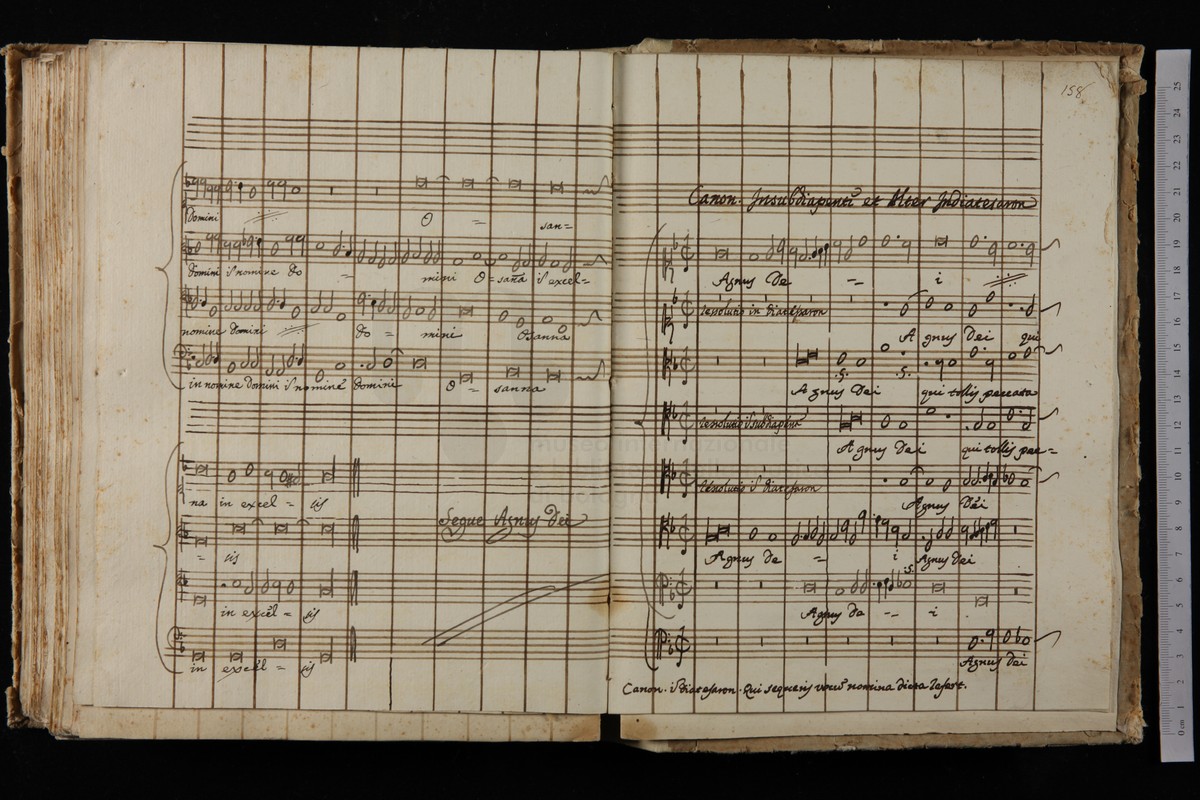 Domini
O = san=
domini i nomine do = mini O = sana i excel=
nomine domini do = mini Osanna
in nomine Domini i nomine domini O = sanna
na in excel = is
= is
in excel = is
in excel = is
Segue Agnus Dei
158
Canon. Insubdiapenti et Alter Indiatesaron
Agnus De -- i
Resolutio in diatesaron
Agnus Dei qui
.S. .S.
Agnus Dei qui tollis peccata
Resolutio i subdiapenti
Agnus Dei qui tollis pec=
Resolutio i diatesaron
Agnus Dei
Agnus De = i Agnus Dei
Agnus De -- i
Agnus Dei
Canon. i diatesaron. Qui sequeris nomina dicta